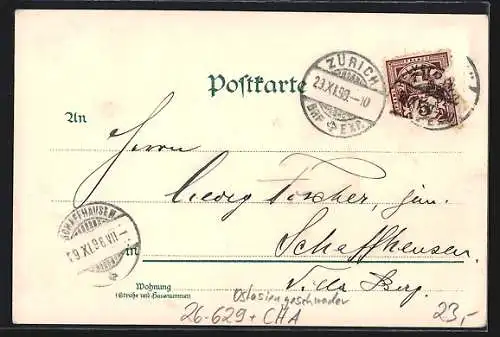 Postkarte
ZÜRICH
23.XI.99.–10
BRF. EXP.
5
An
Herrn
Georg Fischer, jun.
SCHAFFHAUSEN
23.XI.99.VIII–
in
Schaffhausen
Villa Berg.
Wohnung
(Straße und Hausnummer)
Ostasiengeschwader
26-629+CHA
23,-